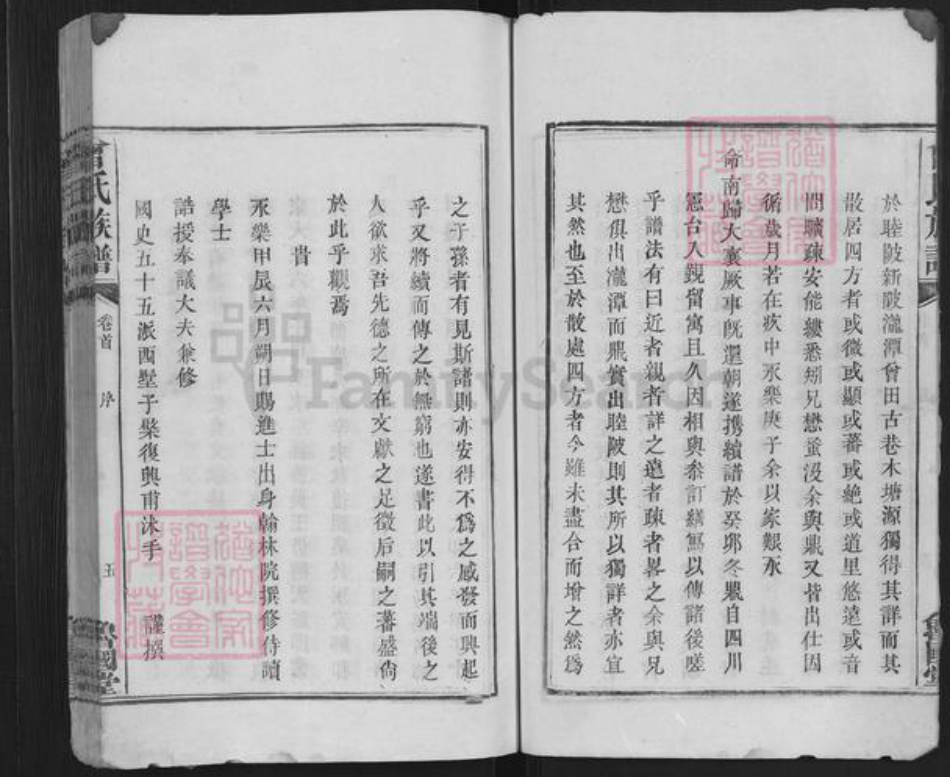 於睦陂新陂瀧潭曾田古巷木塘源獨得其詳而其
散居四方者或微或顯或蕃或絶或道里悠遠或音
問曠疎安能縷悉矧兄懋蚤沒余與鼎又皆出仕因
循歲月若在疚中永樂庚子余以家艱承
命南歸大襄厥事旣還朝遂携續譜於癸卯冬鼎自四川
憲台入覲留寓且久因相與叅訂繕寫以傳諸後嗟
乎譜法有曰近者親者詳之遠者疎者畧之余與兄
懋俱出瀧潭而鼎實出睦陂則其所以獨詳者亦宜
其然也至於散處四方者今雖未盡合而增之然爲
之子孫者有見斯譜則亦安得不爲之感發而興起
乎又將續而傳之於無窮也遂書此以引其端後之
人欲求吾先德之所在文獻之足徵后嗣之蕃盛尙
於此乎觀焉
貴
永樂甲辰六月朔日賜進士出身翰林院撰修侍讀
學士
誥授奉議大夫兼修
國史五十五派西墅子棨復興甫沐手謹撰
曾氏族譜
卷首
序
五
魯國堂
FamilySearch